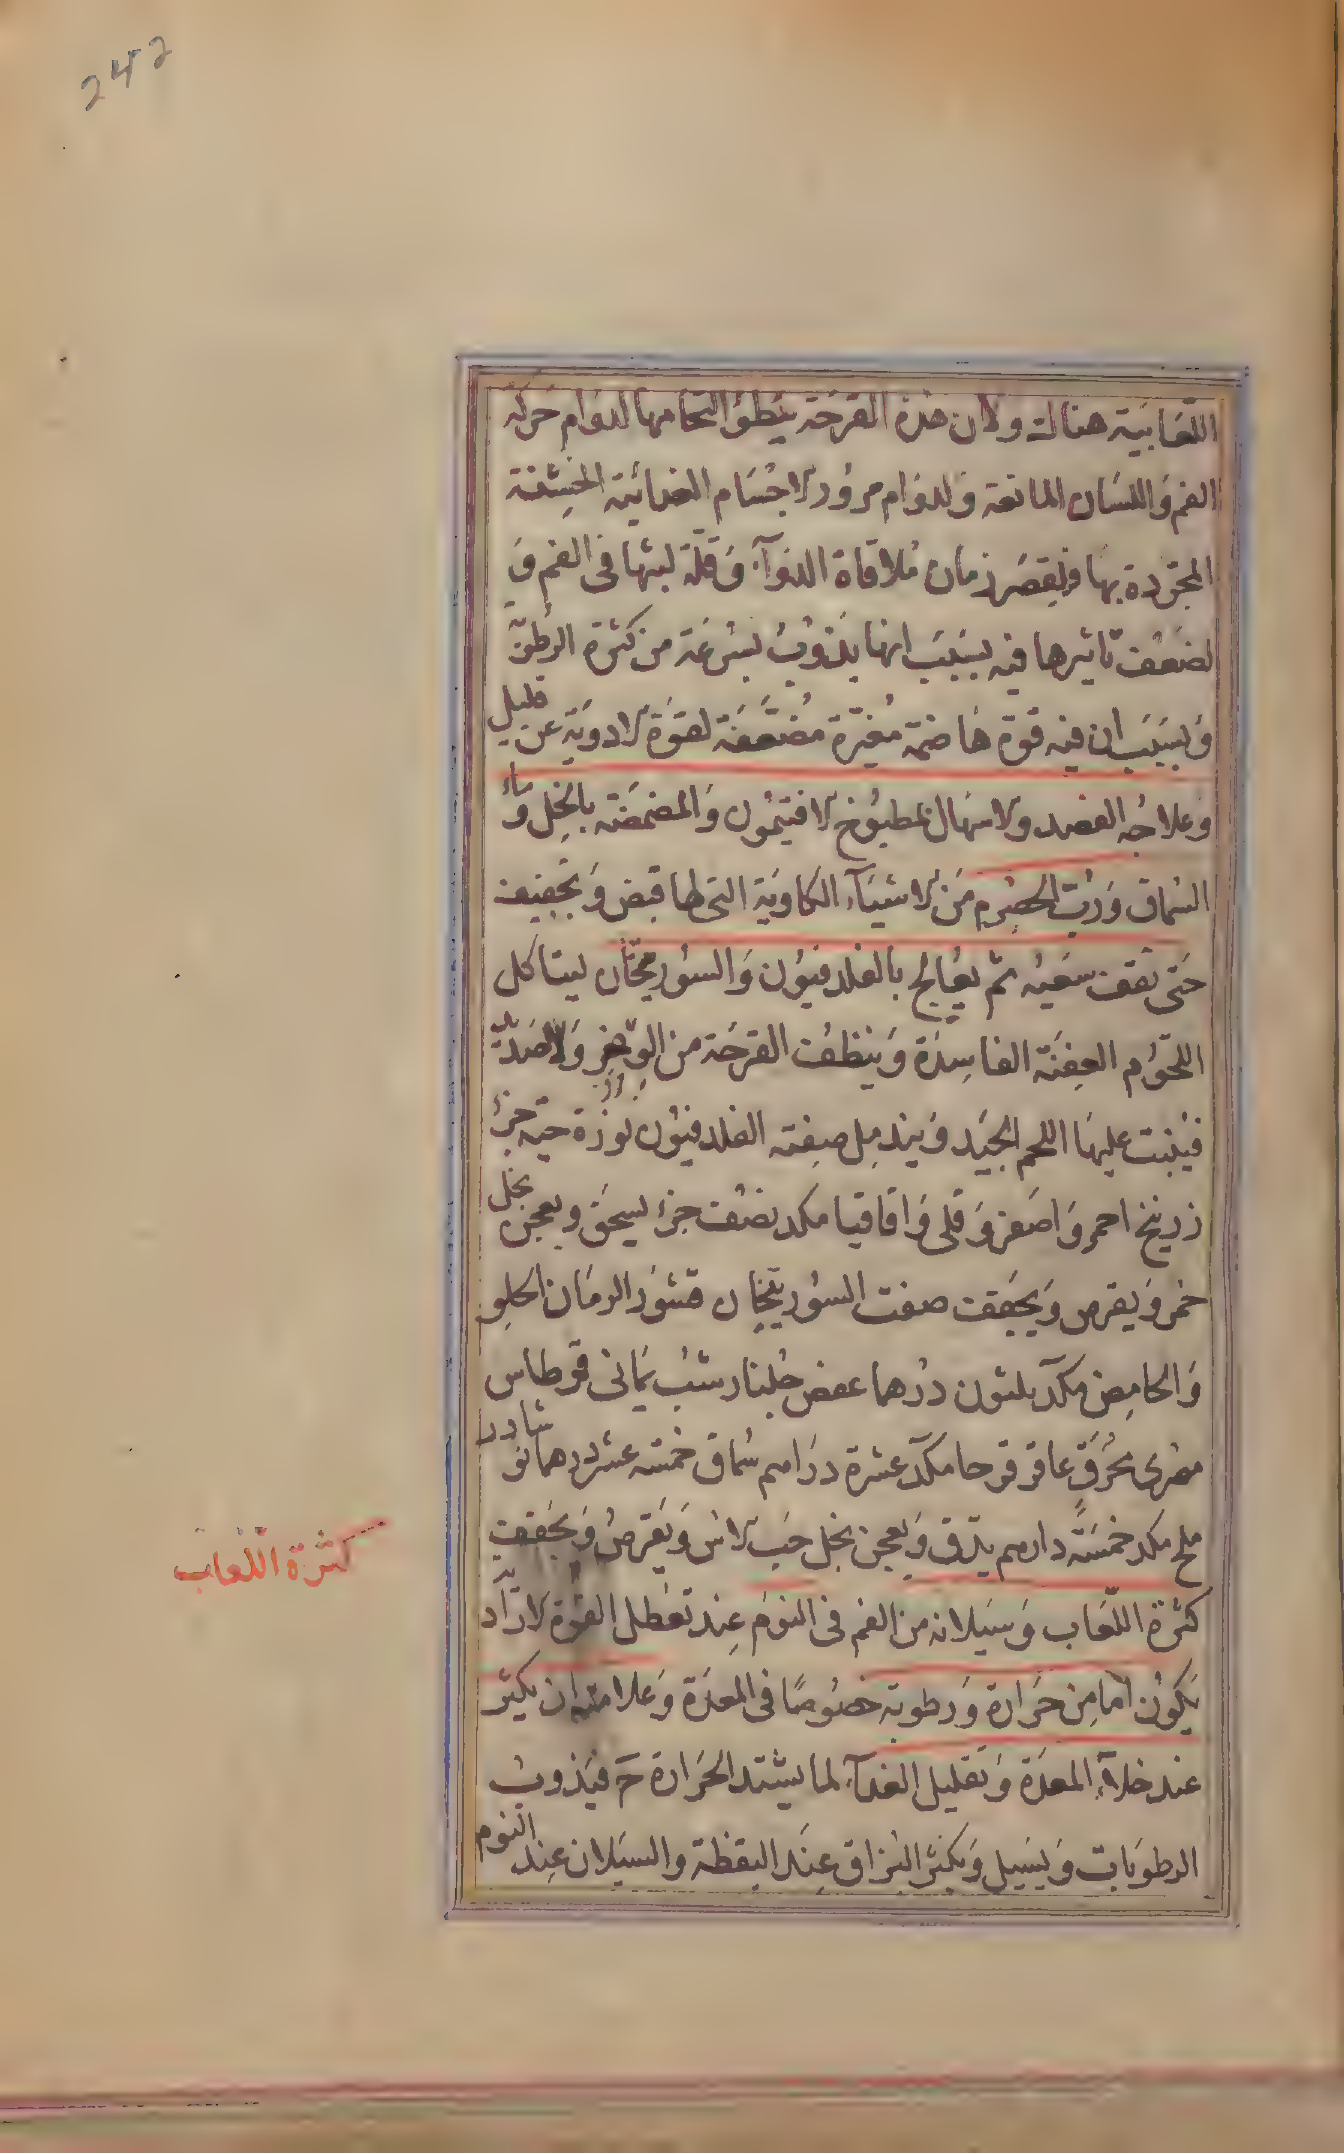 242
اللعابية هناك ولان هذه القرحة يبطؤ التحامها لدوام حركة
الفم واللسان المانعة ولدوام مرور الاجسام الغذائية الخشنة
المجردة بها ولقصر زمان ملاقاة الدواء وقلة لبثها فى الفم و
لضعف تاثيرها فيه بسبب انها يذوب بسرعة من كثرة الرطوبة
وبسبب ان فيه قوة هاضمة مغيرة مضعفة لقوة الادوية عن قليل
وعلاجه الفصد والاسهال بمطبوخ الافتيمون والمضمضة بالخل وماء
السماق ورب الحصرم من الاشياء الكاوية التى لها قبض وتجفيف
حتى تقف سعيه ثم يعالج بالفلدفيون والسوريجان ليتاكل
اللحوم العفنة الفاسدة وينظف القرحة من الوضر والصديد
فينبت عليها اللحم الجيد ويندمل صفته الفلدفيون نورة حية جزء
زرنيخ احمر واصفر وقلى واقاقيا مكد نصف جزء يسحق ويعجن بخل
خمر ويقرص ويجفف صفت السوريجان قشور الرمان الحلو
والحامض مكد ثلثون درهما عفص جلنار شب يمانى قرطاس
مصرى محرق عاقرقرحا مكد عشرة دراهم سماق خمسة عشر درهما نوشادر
ملح مكد خمسة دارهم يدق ويعجن بخل حب الاس ويقرص ويجفف
كثرة اللعاب وسيلانه من الفم فى النوم عند تعطل القوة الارادية
يكون اما من حرارة ورطوبة خصوصا فى المعدة وعلامته ان يكثر
عند خلاء المعدة وتقليل الغذاء لما يشتد الحرارة ح فيذوب
الرطوبات ويسيل ويكثر البزاق عند اليقظة والسيلان عند النوم
كثرة اللعاب